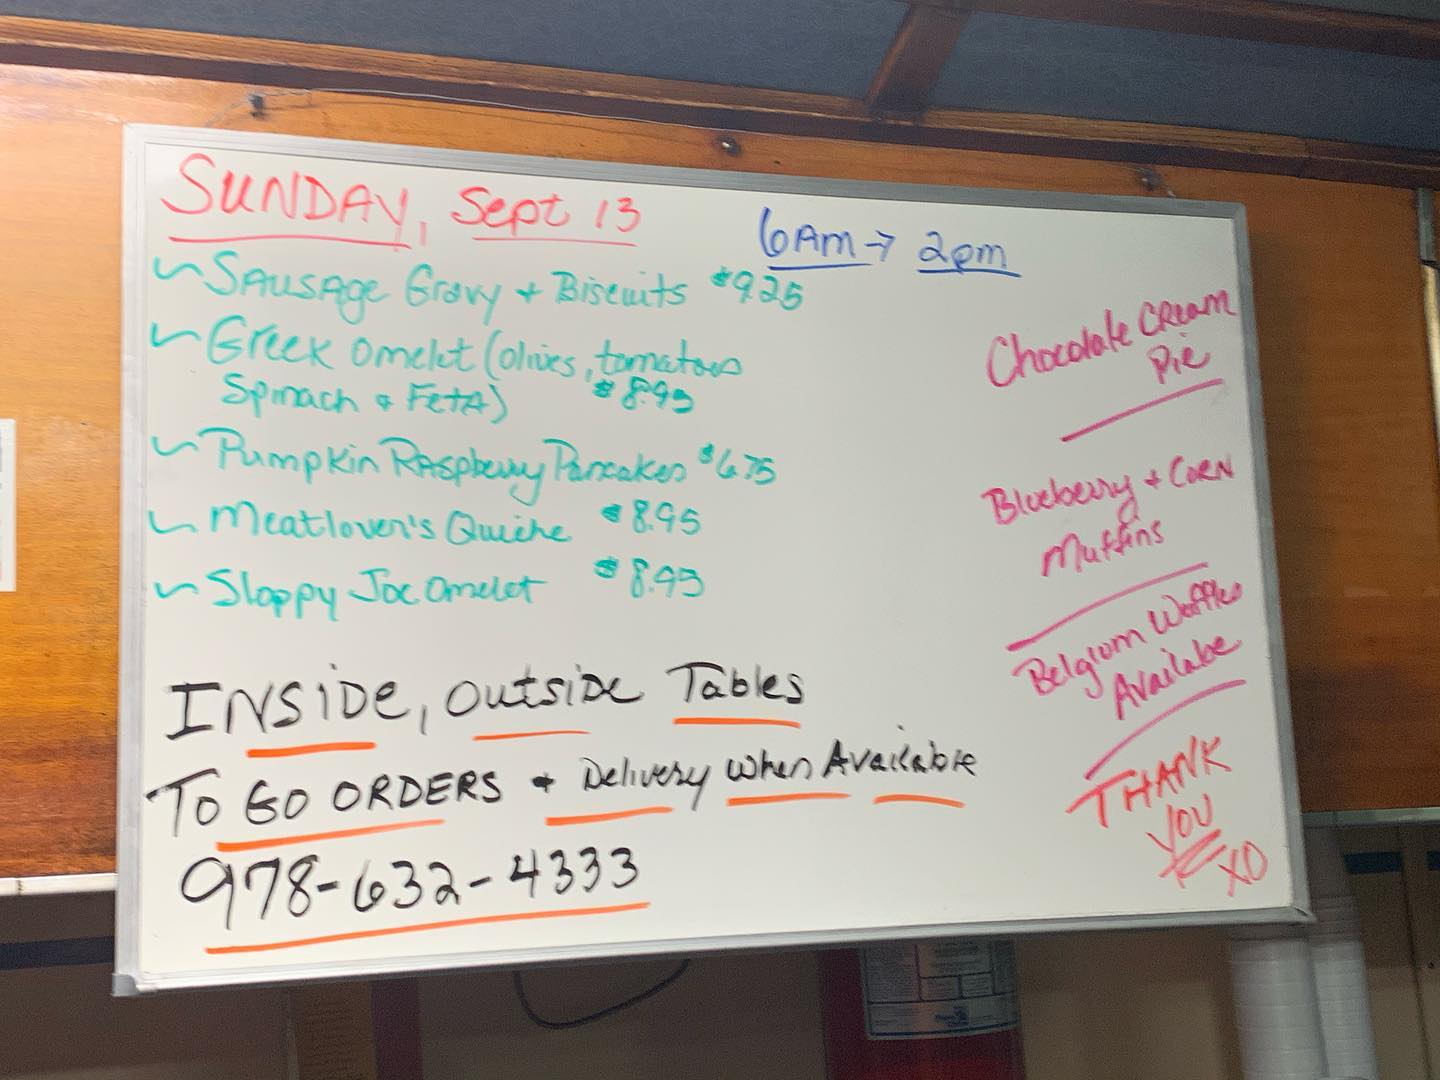 SUNDAY, Sept 13
6Am → 2pm
~ SAUSAGE Gravy + Biscuits $9.25
~ Greek omelet (olives, tomatoes
Spinach & FetA) $8.95
~ Pumpkin RAspberry Pancakes $6.75
~ Meatlover's Quiche $8.95
~ Sloppy Joe omelet $8.95
Chocolate CReam
Pie
Blueberry + CoRN
Muffins
Belgium Waffles
Availabe
THANK
YOU
XO
INSIDE, OutsiDE Tables
To GO ORDERS + Delivery when Available
978-632-4333